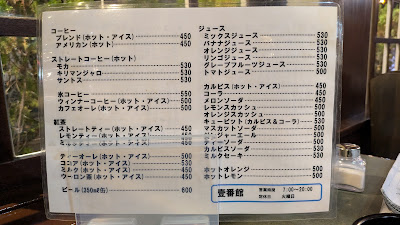 コーヒー
ブレンド(ホット・アイス) 450
アメリカン(ホット) 450
ストレートコーヒー(ホット)
モカ 530
キリマンジャロ 530
サントス 530
氷コーヒー 550
ウィンナーコーヒー(ホット・アイス) 600
カフェオーレ(ホット・アイス) 500
紅茶
ストレートティー(ホット・アイス) 450
(ホット・アイス) 450
(ホット・アイス) 450
ティーオーレ(ホット・アイス) 500
ココア(ホット・アイス) 530
ミルク(ホット・アイス) 450
ウーロン茶(ホット・アイス) 450
ビール(350ml缶) 600
ジュース
ミックスジュース 530
バナナジュース 530
オレンジジュース 530
リンゴジュース 530
グレープフルーツジュース 530
トマトジュース 500
カルピス(ホット・アイス) 450
コーラ 450
メロンソーダ 450
レモンスカッシュ 500
オレンジスカッシュ 500
キューピット(カルピス&コーラ) 530
マスカットソーダ 500
ジンジャーエール 500
ティーソーダ 500
カルピスソーダ 500
ミルクセーキ 530
ホットオレンジ 500
ホットレモン 500
壹番館
営業時間 7:00~20:00
定休日 火曜日